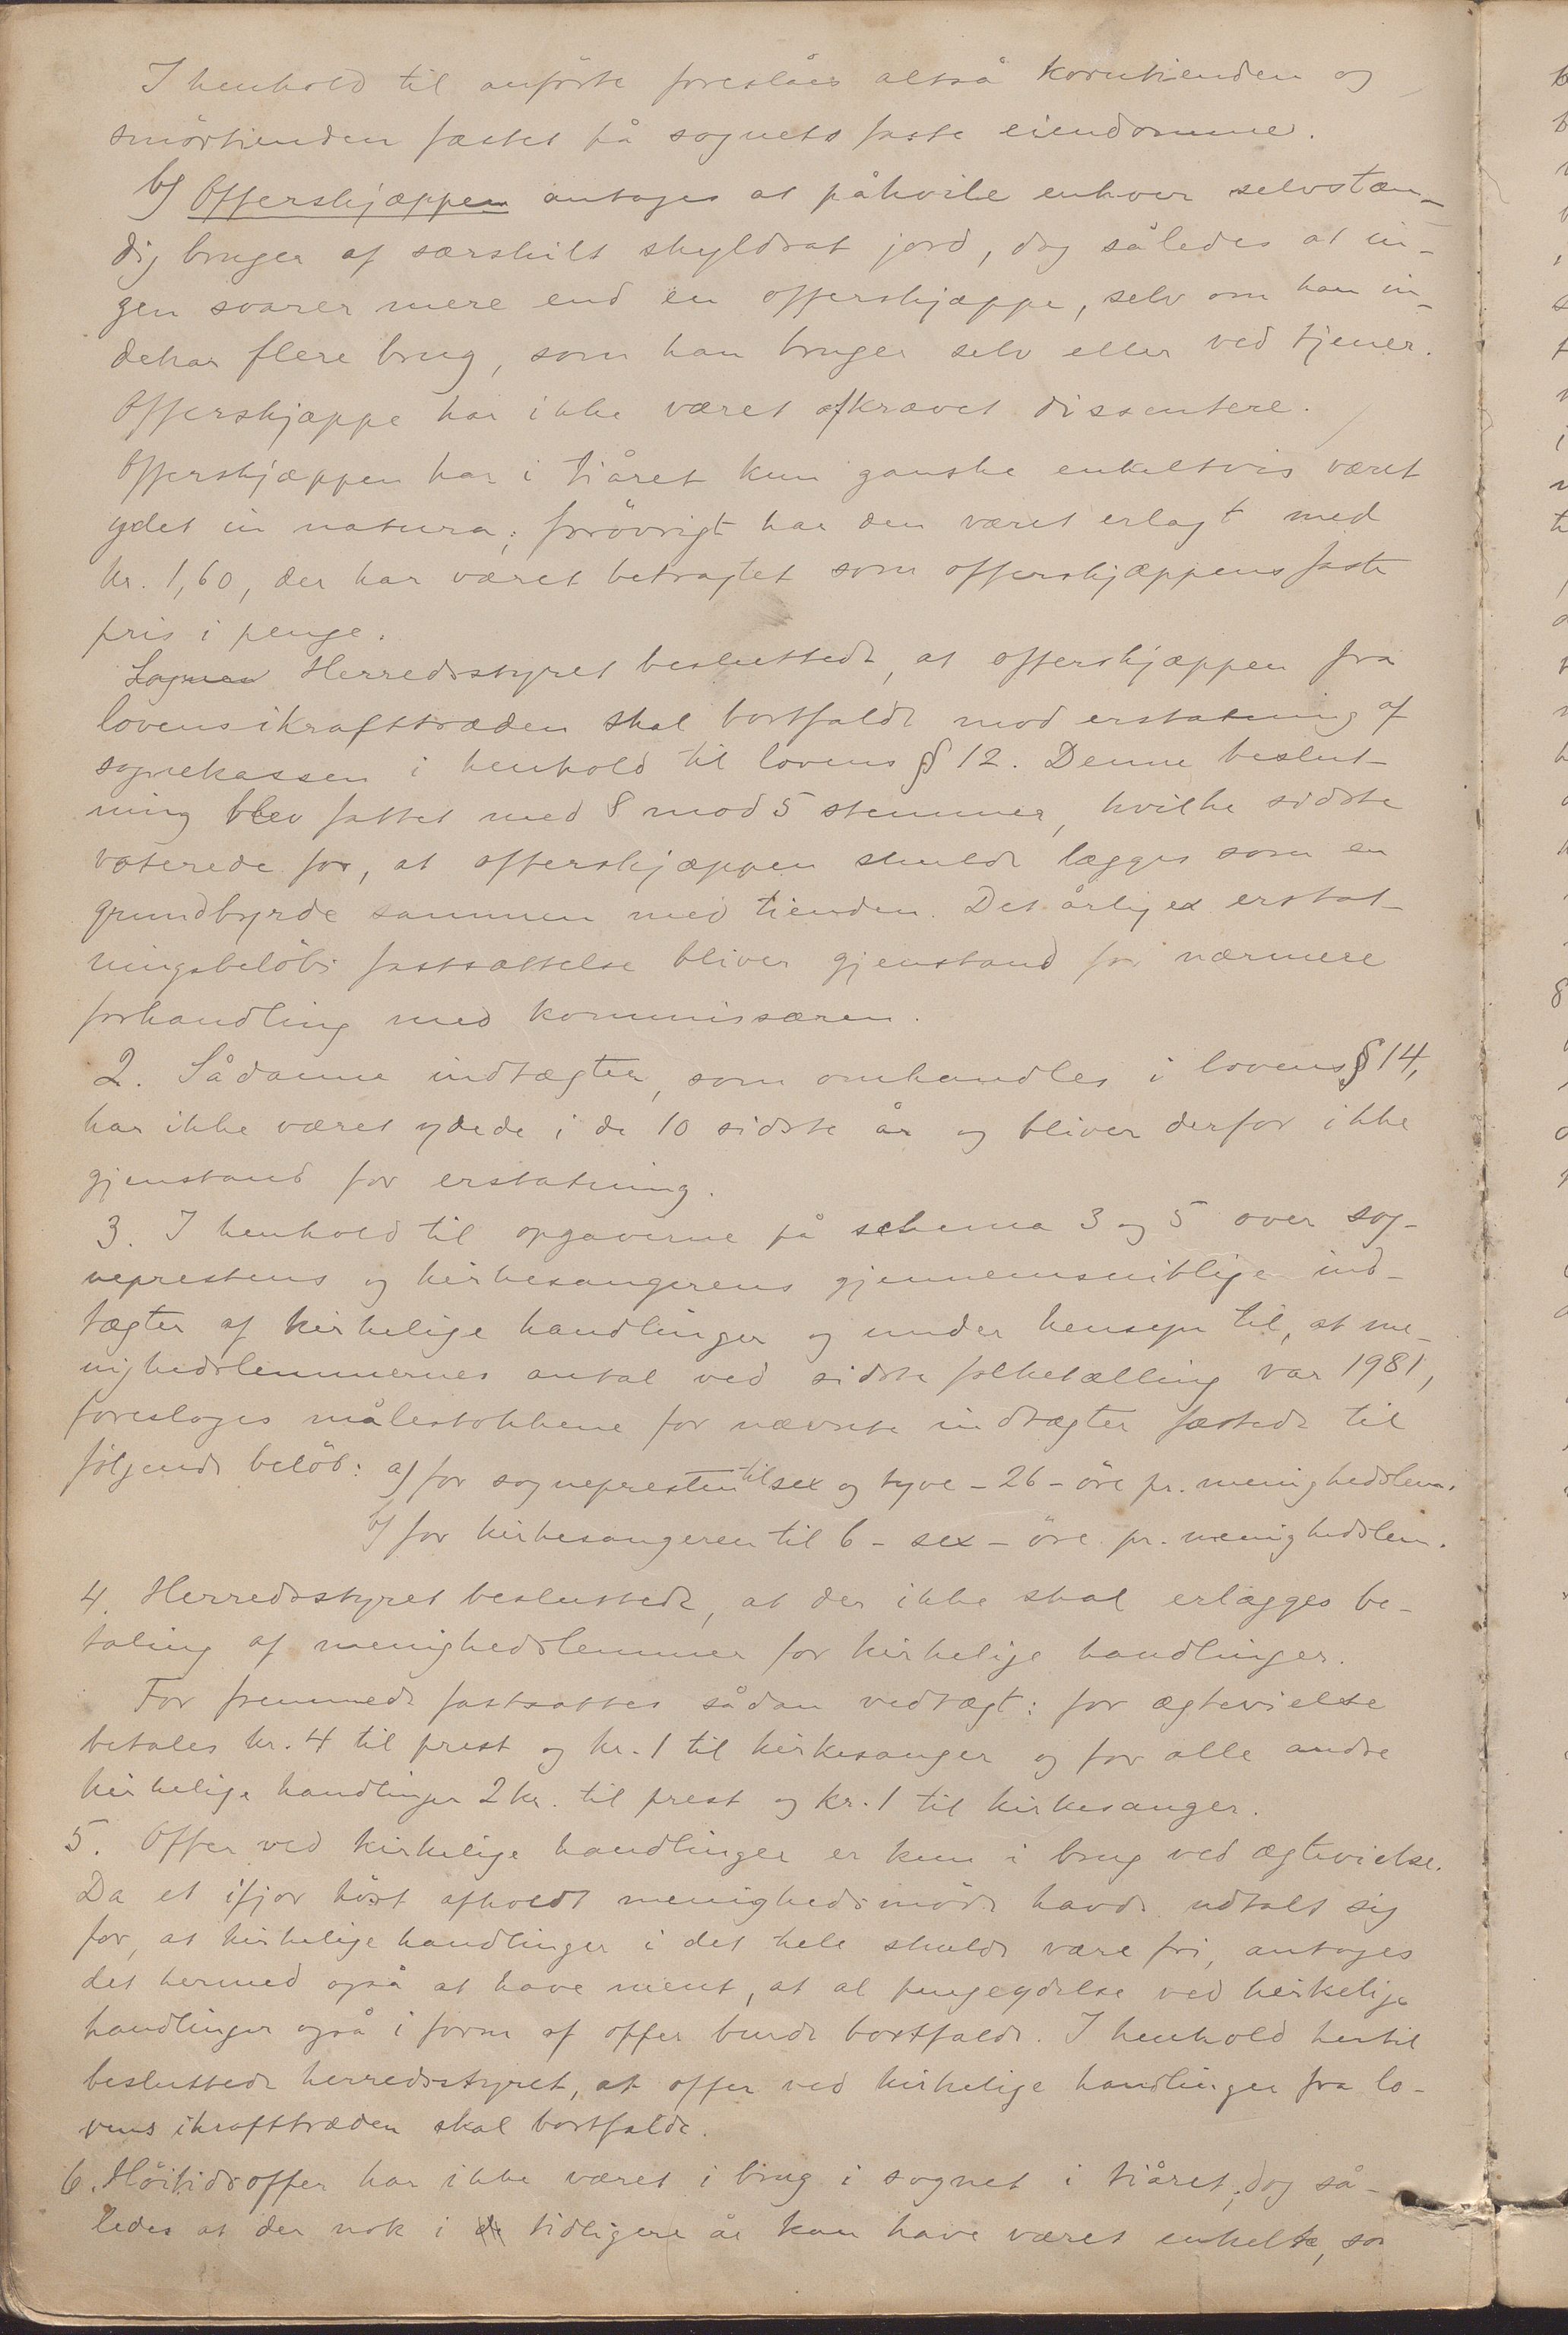 I henhold til anførte foreslåes altså korntienden og
smörtienden fæstet på sognets faste eiendomme.
b) Offerskjæppen antages at påhvile enhver selvstæn-
dig bruger af særskilt skyldsat jord, dog således at in-
gen svarer mere end en offerskjæppe, selv om han in-
dehar flere brug, som han bruger selv eller ved tjener.
Offerskjæppe har ikke været afkrævet dissentere.
Offerskjæppen har i tiåret kun ganske enkeltvis været
ydet in natura; forövrigt har den været erlagt med
kr. 1,60, der har været betragtet som offerskjæppens faste
pris i penge.
Herredsstyret besluttede, at offerskjæppen fra
lovens ikrafttræden skal bortfalde mod erstatning af
sognekassen i henhold til lovens § 12. Denne beslut-
ning blev fattet med 8 mod 5 stemmer, hvilke sidste
voterede for, at offerskjæppen skulde lægges som en
grundbyrde sammen med tienden. Det årlige erstat-
ningsbelöbs fastsættelse bliver gjenstand for nærmere
forhandling med kommissæren.
2. Sådanne indtægter, som omhandles i lovens § 14,
har ikke været ydede i de 10 sidste år og bliver derfor ikke
gjenstand for erstatning.
3. I henhold til opgaverne på schema 3 og 5 over sog-
neprestens og kirkesangerens gjennemsnitlige ind-
tægter af kirkelige handlinger og under hensyn til, at me-
nighedslemmernes antal ved sidste folketælling var 1981,
foresloges målestokkene for nævnte indtægter fæstede til
følgende belöb: a) for sognepresten til sex og tyve - 26 - öre pr. menighedslem.
b) for kirkesangeren til 6 - sex - öre pr. menighedslem.
4. Herredsstyret besluttede, at der ikke skal erlægges be-
taling af menighedslemmer for kirkelige handlinger.
For fremmede fastsattes sådan vedtægt: for ægtevielse
betales kr. 4 til prest og kr. 1 til kirkesanger og for alle andre
kirkelige handlinger 2 kr. til prest og kr. 1 til kirkesanger.
5. Offer ved kirkelige handlinger er kun i brug ved ægtevielse.
Da et ifjor höst afholdt menighedsmöde havde udtalt sig
for, at kirkelige handlinger i det hele skulde være fri, antoges
det hermed også at have ment, at al pengeydelse ved kirkelige
handlinger også i form af offer burde bortfalde. I henhold hertil
besluttede herredsstyret, at offer ved kirkelige handlinger fra lo-
vens ikrafttræden skal bortfalde.
6. Höitidsoffer har ikke været i brug i sognet i tiåret; dog så-
ledes at der nok i tidligere år kan have været enkelte, som